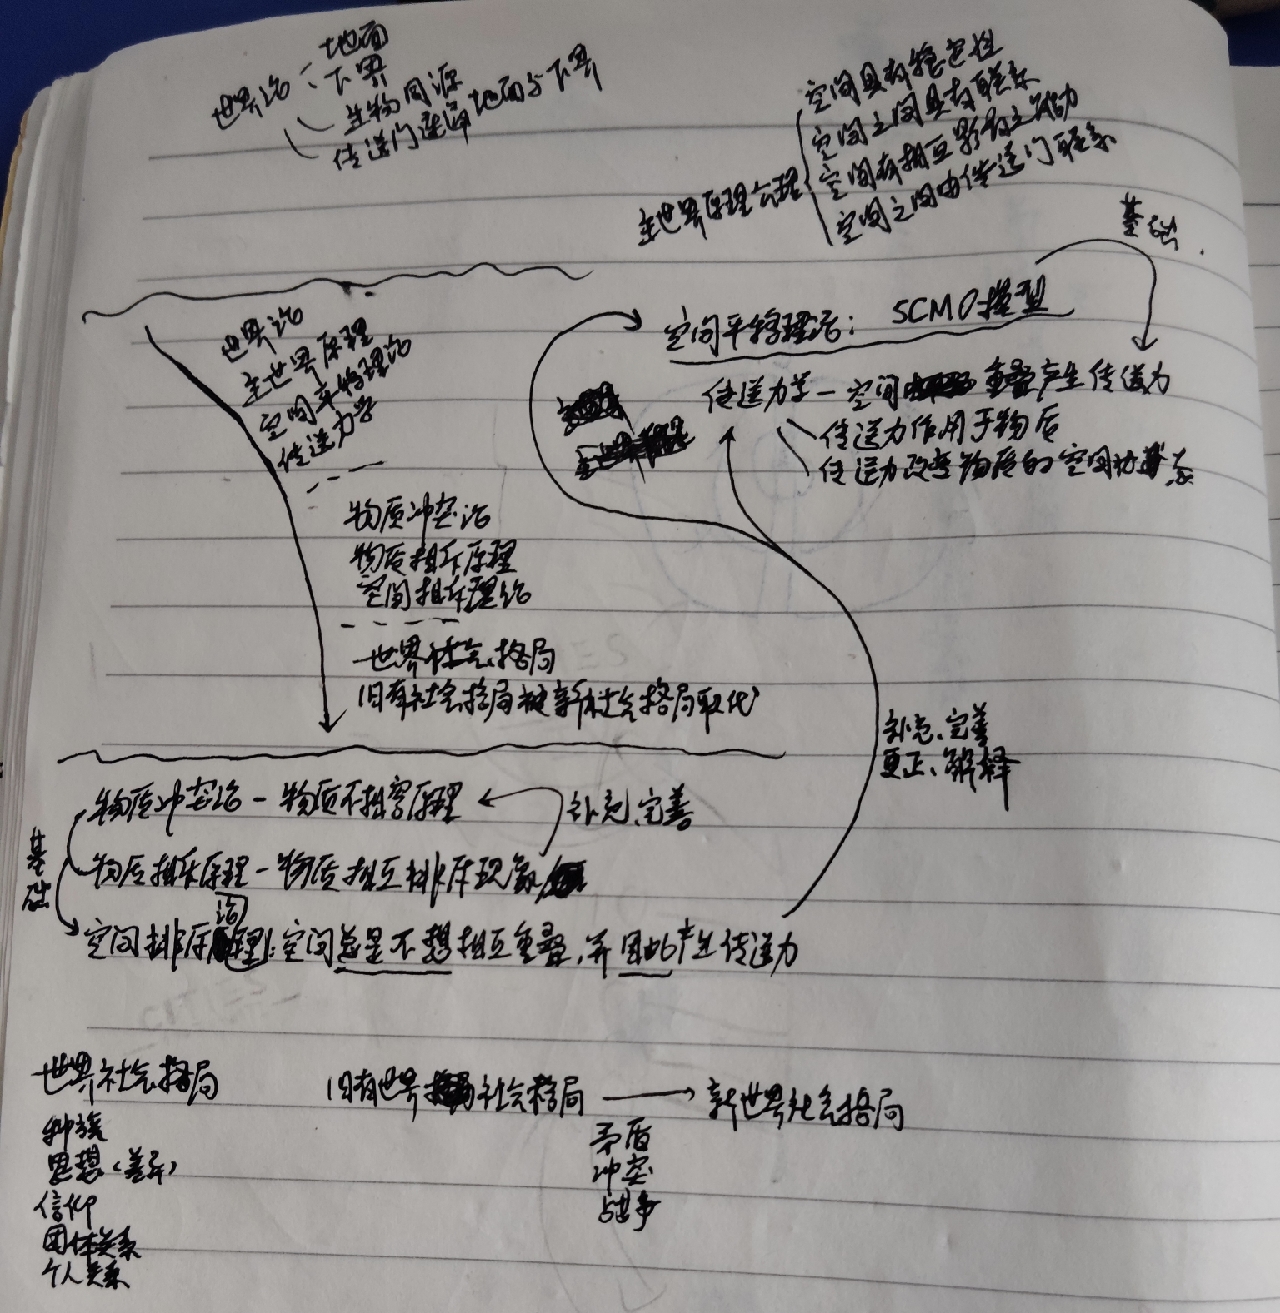 世界论：地面
下界
生物同源
传送门连通地面与下界
主世界原理公理
空间具有稳定性
空间之间具有联系
空间有相互影响之能力
空间之间由传送门联系
基础
世界论
主世界原理
空间平物理论
传送力学
物质冲突论
物质排斥原理
空间排斥理论
世界社会格局
旧有社会格局被新社会格局取代
空间平物理论： SCMO模型
传送力学－空间重叠产生传送力
传送力作用于物质
传送力改变物质的空间状态
补充、完善
更正、解释
物质冲突论－物质不相容原理
补充、完善
基础
物质排斥原理－物质相互排斥现象
空间排斥理论：空间总是不想相互重叠，并因此产生传送力
世界社会格局
种族
思想（差异）
信仰
团体关系
个人关系
旧有世界社会格局 → 新世界社会格局
矛盾
冲突
战争